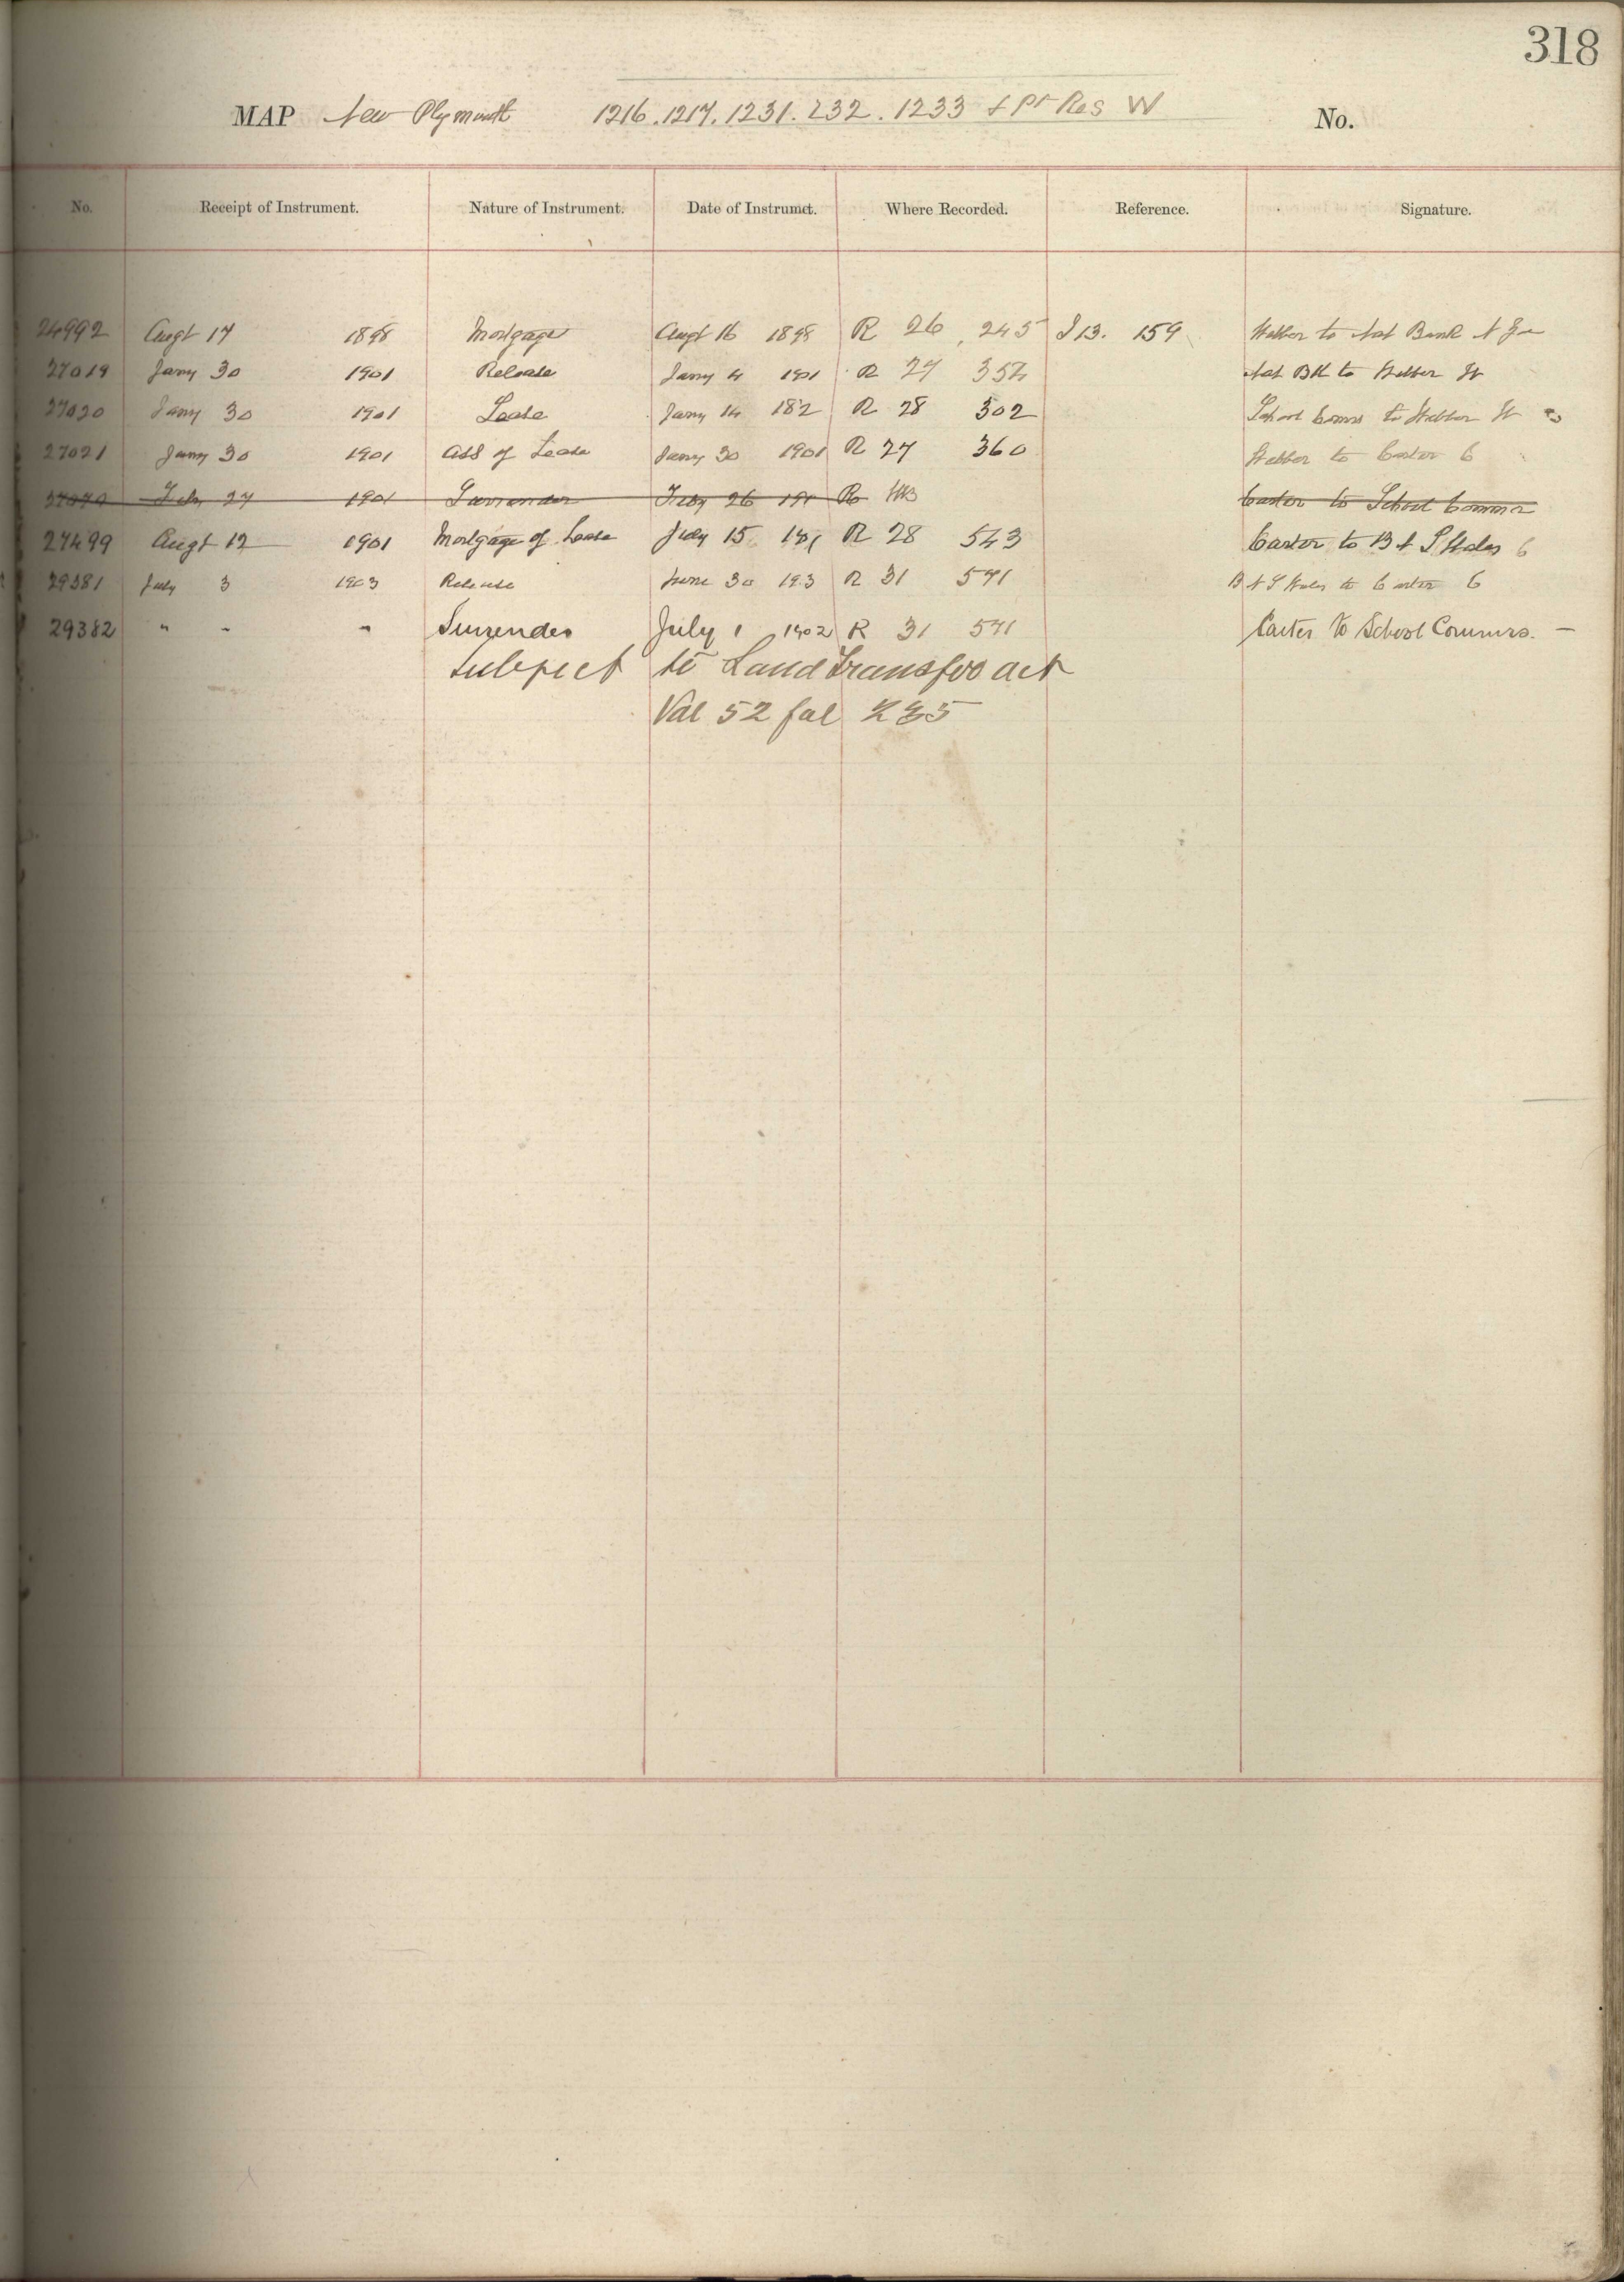 318
MAP New Plymouth 1216. 1217. 1231. 232. 1233 & Pt Res W No.
No. Receipt of Instrument. Nature of Instrument. Date of Instrumet. Where Recorded. Reference. Signature.
24992 Augt 17 1898 Mortgage Augt 16 1898 R 26, 245 I 13. 159 to Nat Bank N Z
27019 Jany 30 1901 Release Jany 4 1901 R 27 357 Nat Bk to
27020 Jany 30 1901 Lease Jany 14 R 28 302 School Comrs to
27021 Jany 30 1901 Ass of Lease Jany 30 1901 R 27 360 to Carter C
Feby 27 1901 Surrender Feby 26 R Carter to School Commrs
27499 Augt 12 1901 Mortgage of Lease July 15 R 28 543 Carter to B & S
29381 July 3 1903 Release June 30 193 R 31 541 B & S to Carter C
29382 " " " Surrender July 1 1902 R 31 541 Carter to School Commrs. —
Subject to Land Transfer act
Vol 52 fol